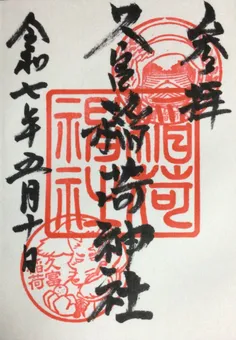 参拝
久富稲荷神社
令和七年五月十日
稲荷神社
久富稲荷